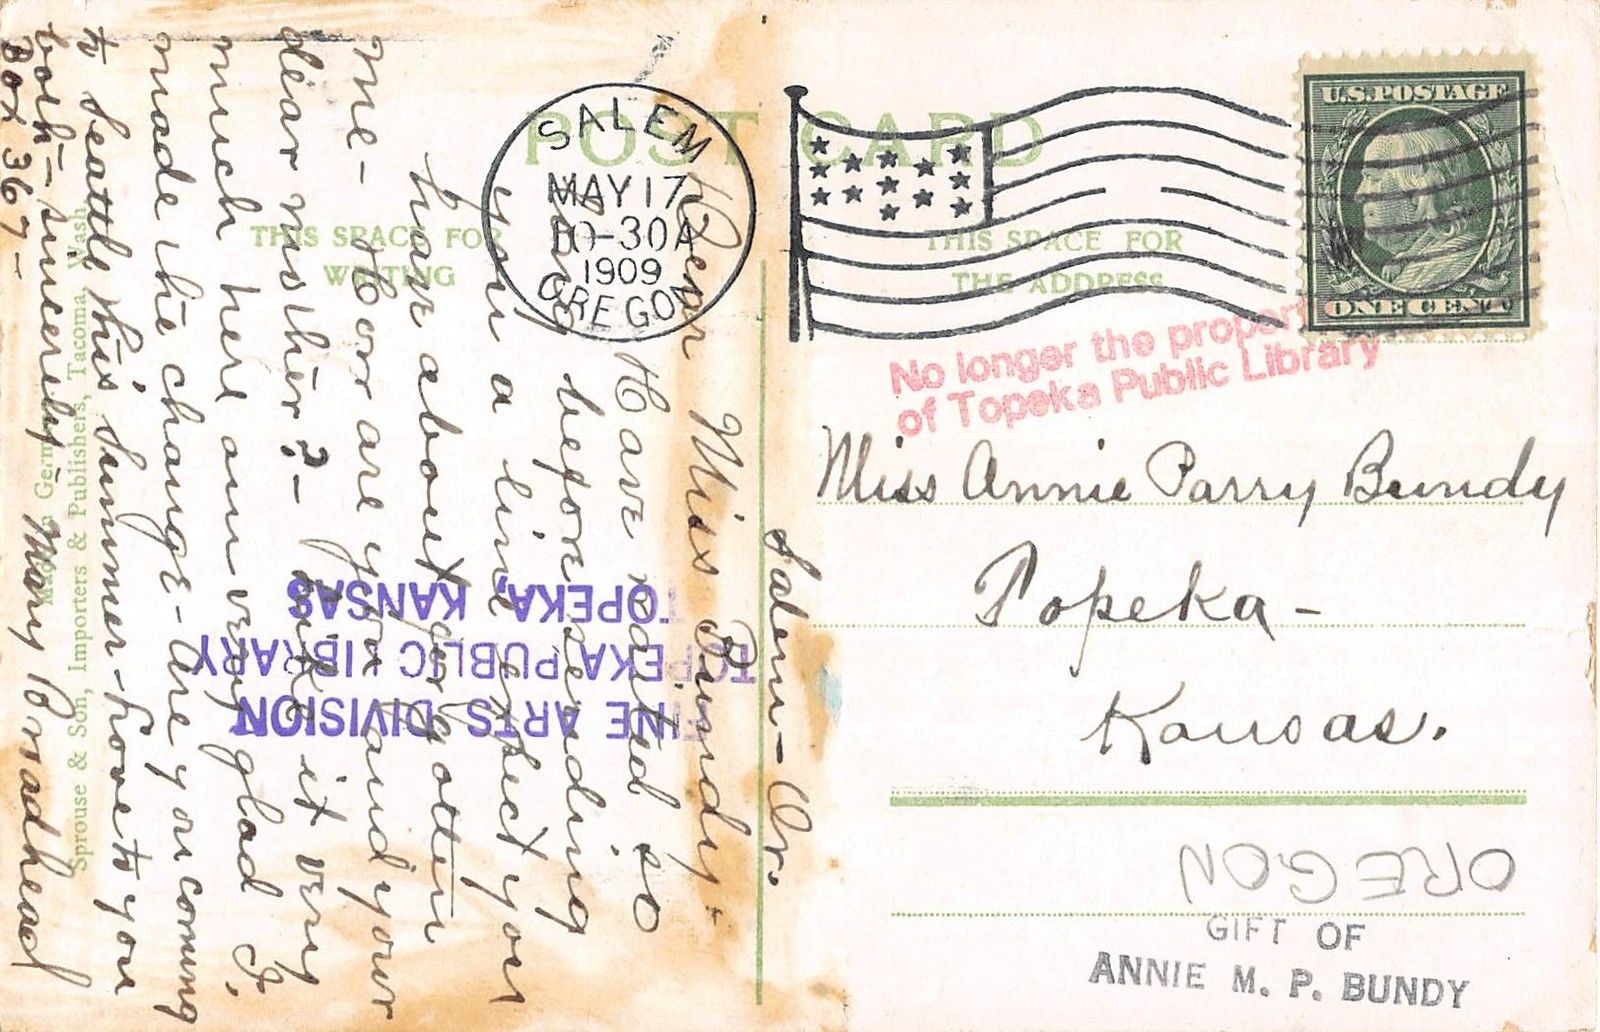 POST CARD
THIS SPACE FOR
WRITING
THIS SPACE FOR
THE ADDRESS
SALEM
MAY 17
10-30A
1909
OREGON
U.S. POSTAGE
ONE CENT
No longer the propert
of Topeka Public Library
Miss Annie Parry Bundy
Topeka-
Kansas.
OREGON
GIFT OF
ANNIE M. P. BUNDY
Salem-Or.
Dear Miss Bundy-
Have waited so
long before sending
you a line expect you
have about forgotten
me- How are you and your
dear mother?- Like it very
much here am very glad I
made the change- Are you coming
to Seattle this Summer- Love to you
both- sincerely Mary Broadhead
Box 367-
FINE ARTS DIVISION
TOPEKA PUBLIC LIBRARY
TOPEKA, KANSAS
Made in Germany
Sprouse & Son, Importers & Publishers, Tacoma, Wash.